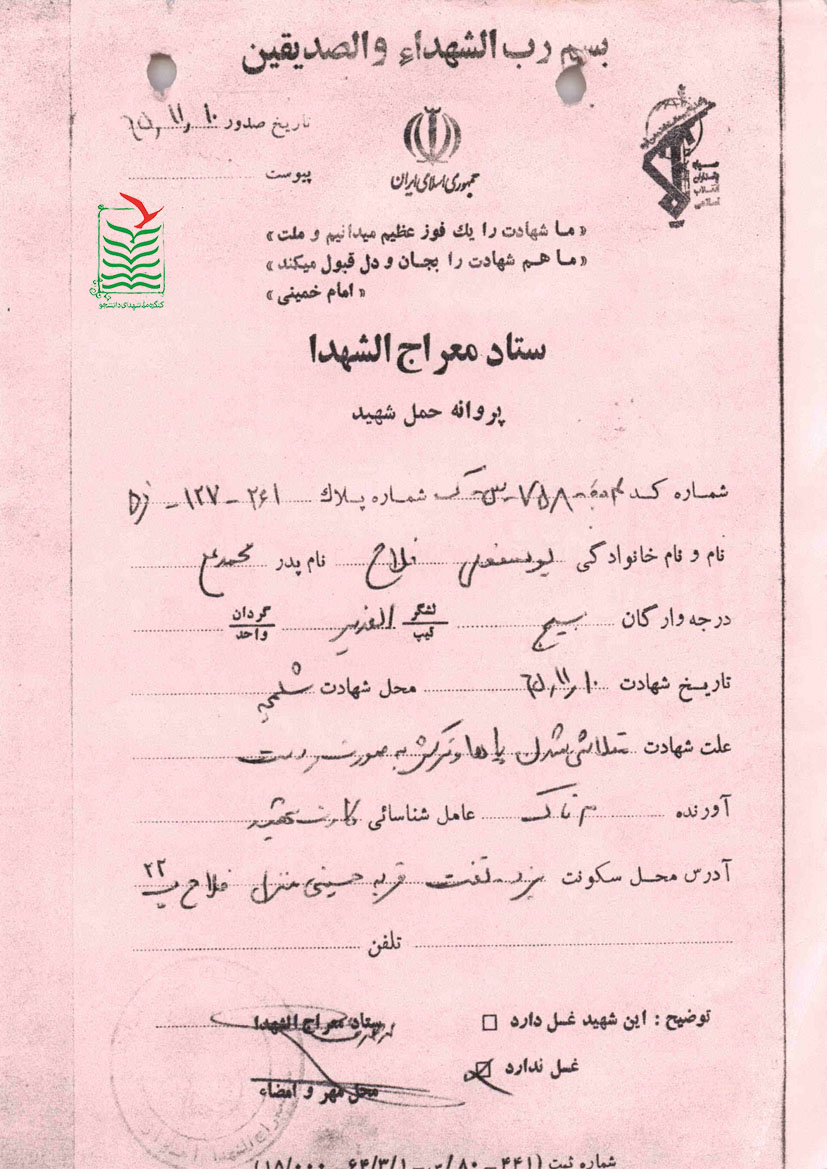 بسم رب الشهداء والصدیقین
تاریخ صدور ۶۵٫۱۱٫۱۰
پیوست
جمهوری اسلامی ایران
سپاه پاسداران انقلاب اسلامی
کنگره ملی شهدای دانشجو
«ما شهادت را یك فوز عظیم میدانیم و ملت»
«ما هم شهادت را بجان و دل قبول میکند»
«امام خمینی»
ستاد معراج الشهدا
پروانه حمل شهید
شماره کد ۷۵۸ شماره پلاك ۲۶۱ - ۱۲۷ -
نام و نام خانوادگی یوسفعلی فلاح نام پدر محمدعلی
درجه وارگان بسیج لشگر تیپ الغدیر گردان واحد
تاریخ شهادت ۶۵٫۱۱٫۱۰ محل شهادت شلمچه
علت شهادت متلاشی شدن پاها و ترکش به صورت و دست
آورنده عامل شناسائی کارت
آدرس محل سکونت یزد - تفت قریه حسینی منزل فلاح پ ۲۲
تلفن
توضیح : این شهید غسل دارد
غسل ندارد
ستاد معراج الشهدا
محل مهر و امضاء
شماره ثبت (۴۴۱ - ۸۰/س - ۶۴/۳/۱ - ۱۵/۰۰۰)